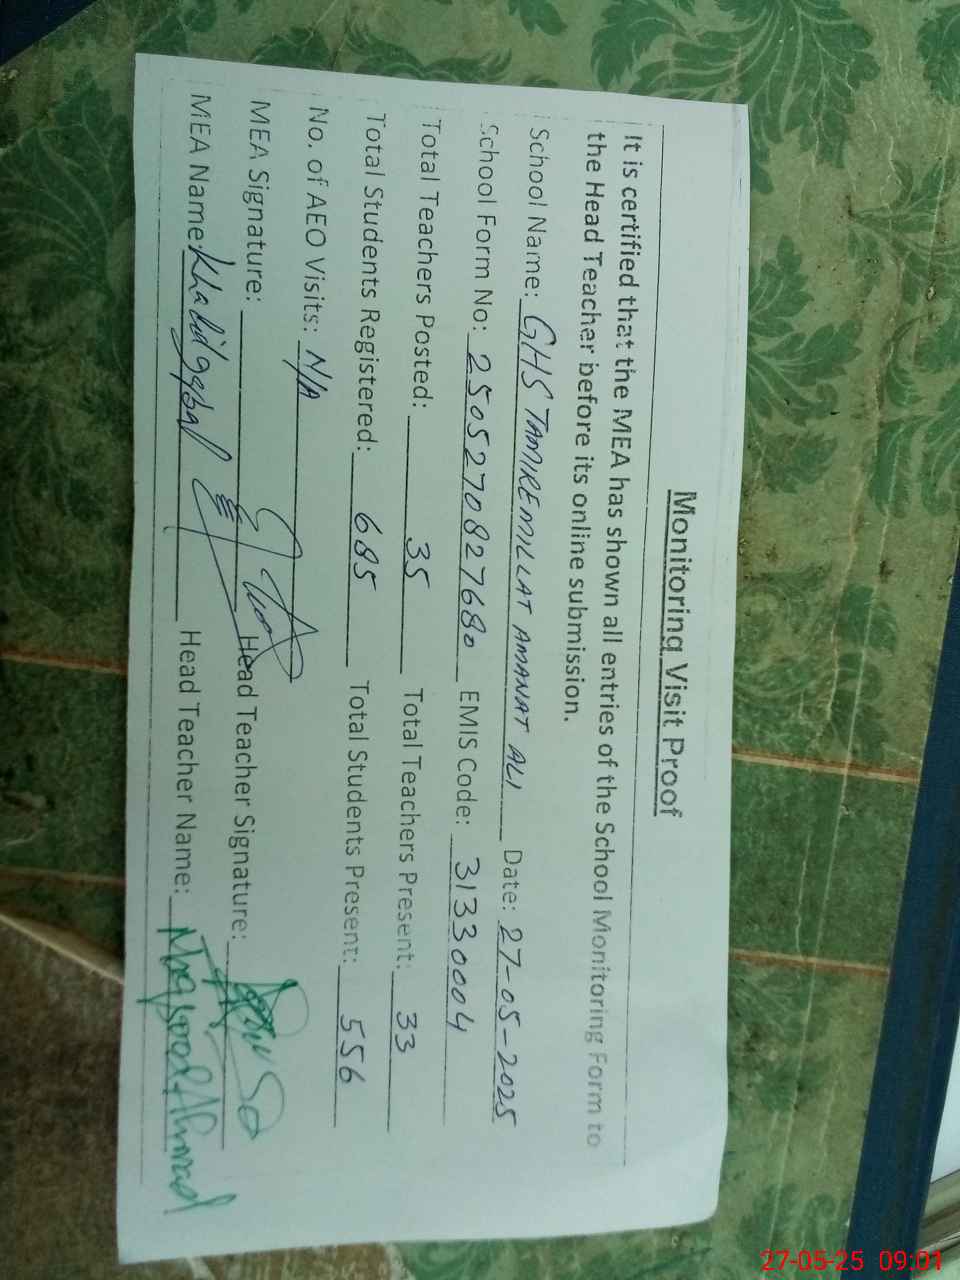 Monitoring Visit Proof
It is certified that the MEA has shown all entries of the School Monitoring Form to
the Head Teacher before its online submission.
School Name: GHS TAMIREMILLAT AMANAT ALI Date: 27-05-2025
School Form No: 2505270827680 EMIS Code: 31330004
Total Teachers Posted: 35 Total Teachers Present: 33
Total Students Registered: 685 Total Students Present: 556
No. of AEO Visits: N/A
MEA Signature: Head Teacher Signature:
MEA Name: Khalid Iqbal Head Teacher Name: Maqsood Ahmad
27-05-25 09:01